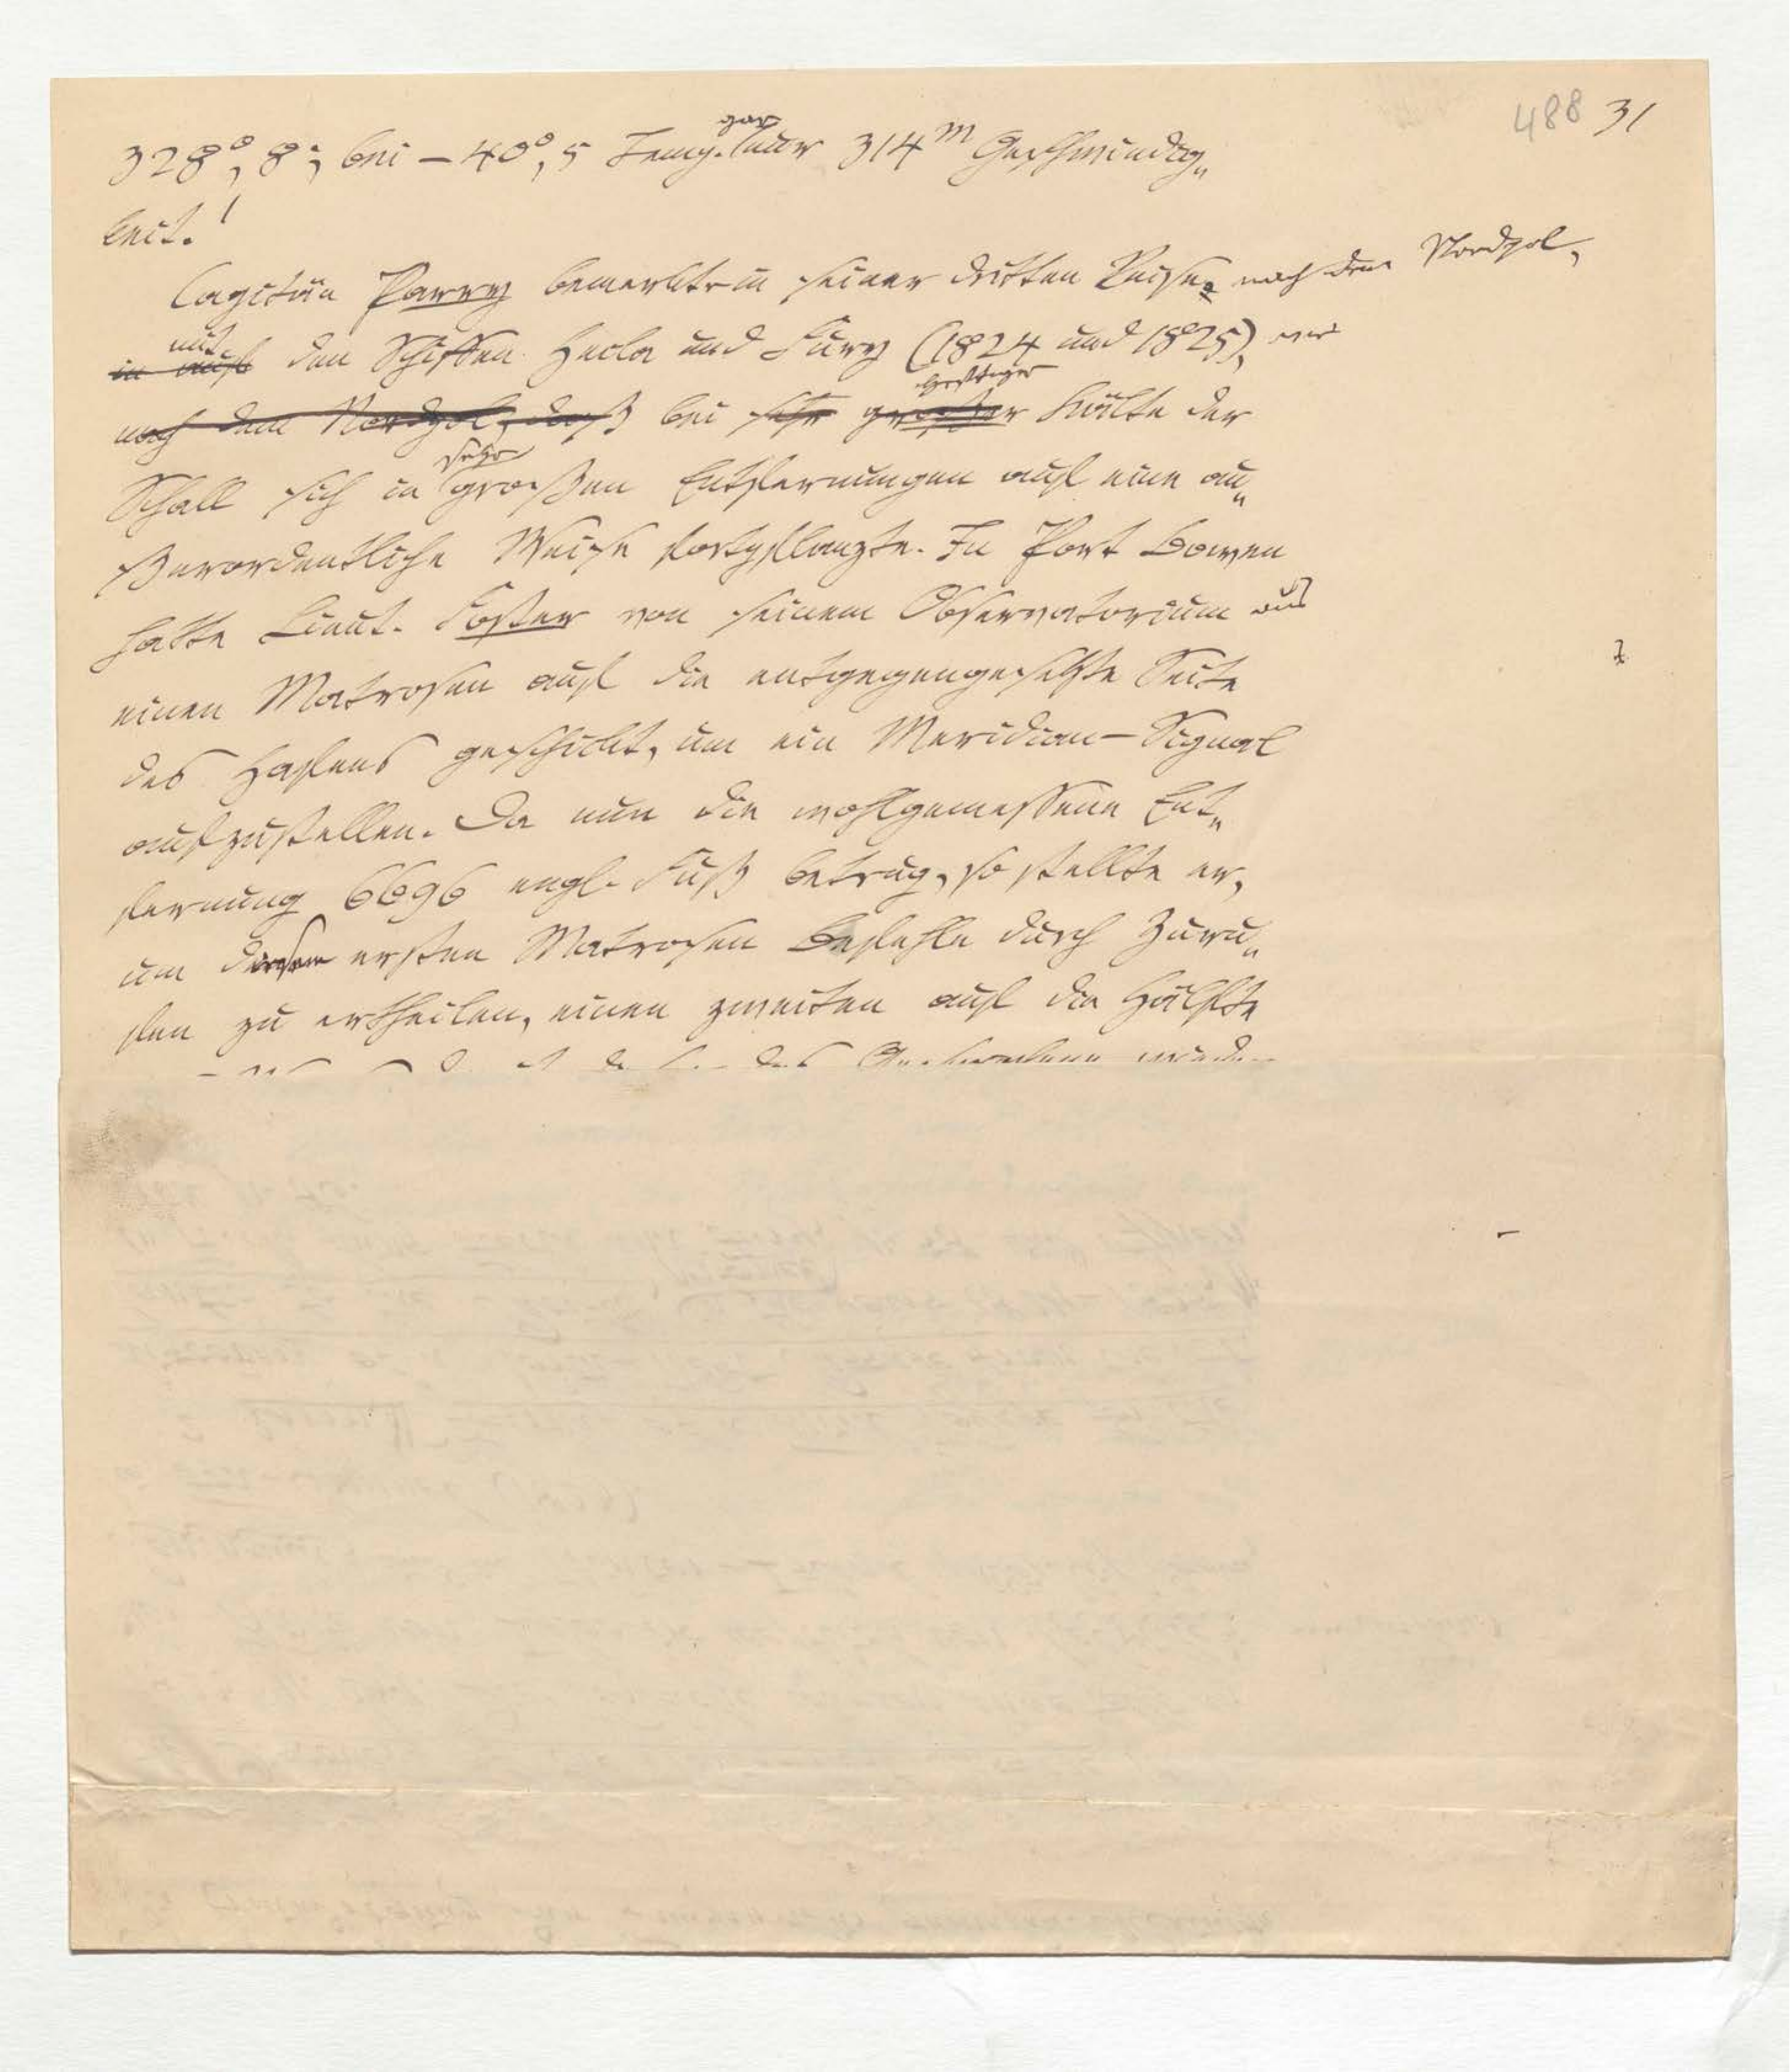 488 31
gar
328°, 8; bei – 40°, 5 Temp. nur 314m Geschwindig„
keit.!
Capitän Parry bemerkte in seiner dritten Reise nach dem Nordpol,
mit
in auf den Schiffen Hecla und Fury (1824 und 1825), wie
heftiger
nach dem Nordpol, daß bei sehr großer Kälte der
sehr
Schall sich in großen Entfernungen auf eine au„
ßerordentliche Weise fortpflanzte. In Port Bowen
hatte Lieut. Foster von seinem Observatorium aus
einen Matrosen auf die entgegengesetzte Seite
des Hafens geschickt, um ein Meridian-Signal
aufzustellen. Da nun die wohlgemessene Ent„
fernung 6696 engl. Fuß betrug, so stellte er,
um diesem ersten Matrosen Befehle durch Zuru„
fen zu ertheilen, einen zweiten auf die Hälfte
des Gesprochene